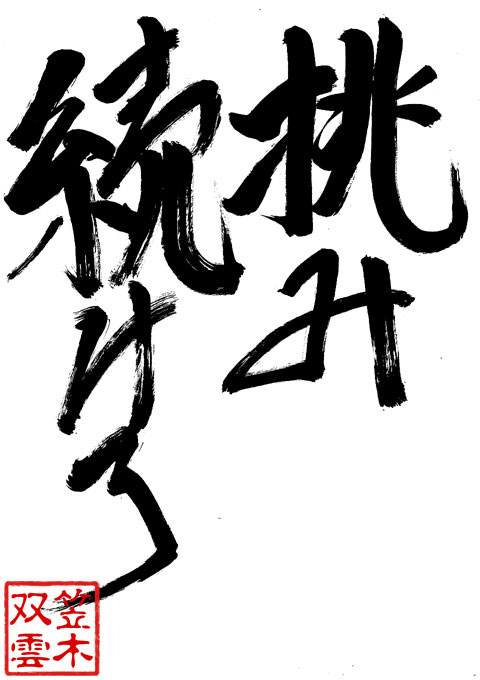 挑み
続けろ
笠木
双雲